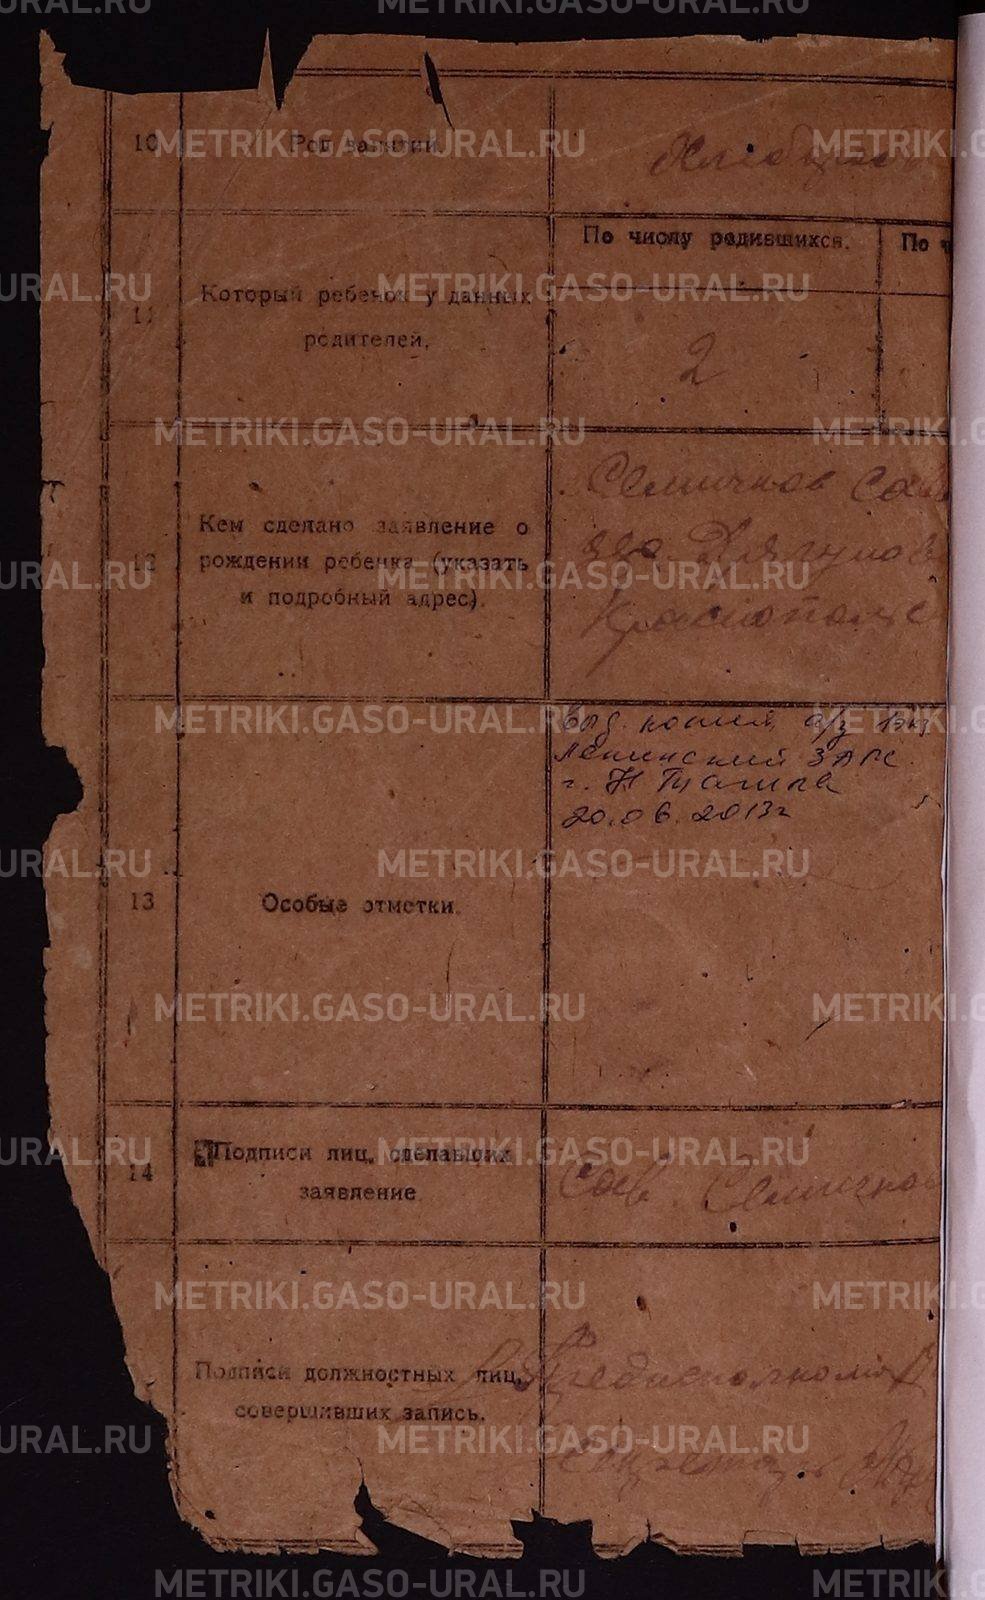 METRIKI.GASO-URAL.RU
10
Род занятий.
По числу родившихся.
По ч
11
Который ребенок у данных
родителей.
2
12
Кем сделано заявление о
рождении ребенка (указать
и подробный адрес).
Семичков Сав
Краснополь
13
Особые отметки.
выд. копия а/з 1экз
Ленинский ЗАГС
г. Н Тагила
20.06.2013г
14
Подписи лиц, сделавших
заявление
Сав. Семичков
Подписи должностных лиц,
совершивших запись.
Предисполкома